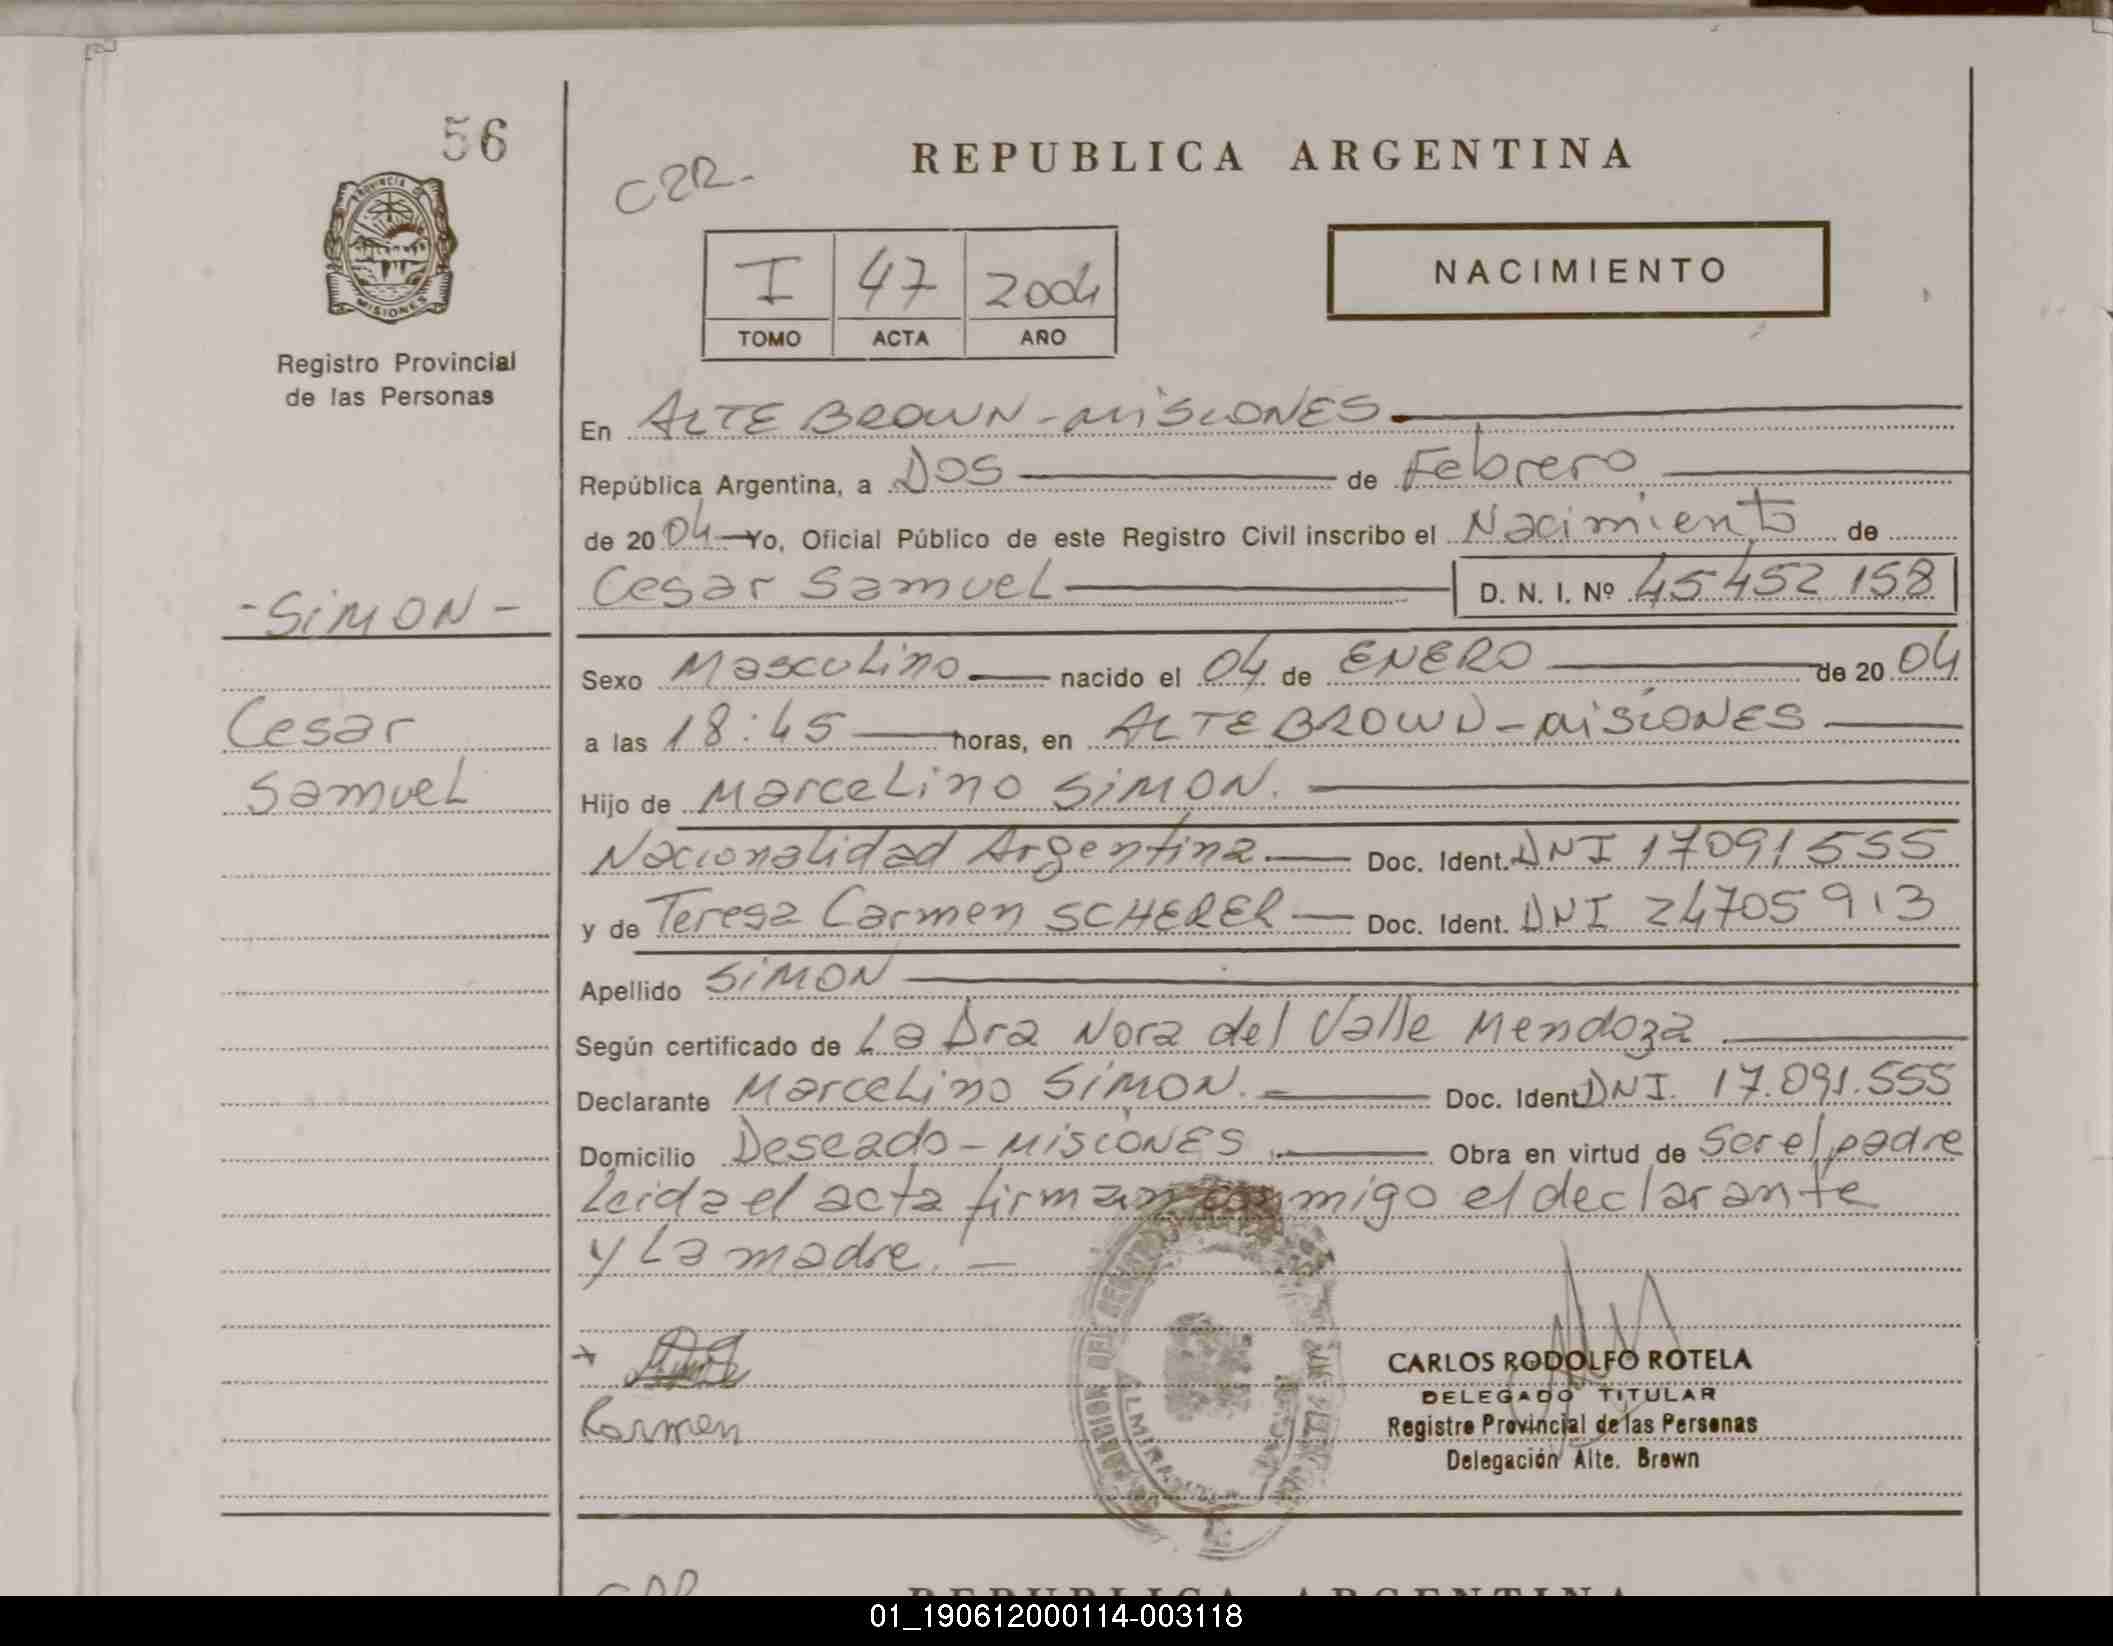 56
PROVINCIA DE
MISIONES
Registro Provincial
de las Personas
REPUBLICA ARGENTINA
I 47 2004
TOMO ACTA AÑO
NACIMIENTO
En ALTE BROWN - MISIONES
República Argentina, a DOS de Febrero
de 2004 Yo, Oficial Público de este Registro Civil inscribo el Nacimiento de
Cesar Samuel D. N. I. Nº 45452158
- SIMON -
Cesar
Samuel
Sexo Masculino nacido el 04 de ENERO de 2004
a las 18:45 horas, en ALTE BROWN - MISIONES
Hijo de Marcelino SIMON.
Nacionalidad Argentina Doc. Ident. DNI 17091555
y de Teresa Carmen SCHERER Doc. Ident. DNI 24705913
Apellido SIMON
Según certificado de La Dra Nora del Valle Mendoza
Declarante Marcelino SIMON. Doc. Ident DNI. 17.091.555
Domicilio Deseado - MISIONES Obra en virtud de ser el padre
Leida el acta firman conmigo el declarante
y La madre. -
Karmen
CARLOS RODOLFO ROTELA
DELEGADO TITULAR
Registro Provincial de las Personas
Delegación Alte. Brown
REPUBLICA ARGENTINA
01_190612000114-003118